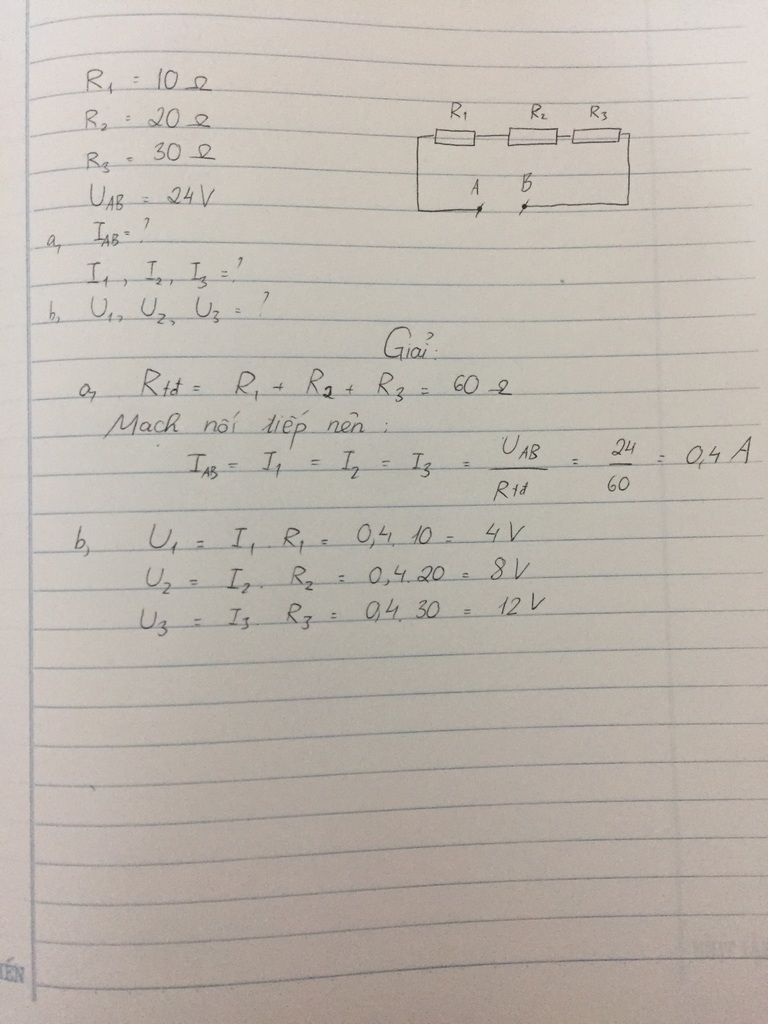 R₁ = 10 Ω
R₂ = 20 Ω
R₃ = 30 Ω
U_AB = 24V
R₁ R₂ R₃
A B
a, I_AB = ?
I₁, I₂, I₃ = ?
b, U₁, U₂, U₃ = ?
Giải:
a, Rtđ = R₁ + R₂ + R₃ = 60 Ω
Mạch nối tiếp nên :
I_AB = I₁ = I₂ = I₃ = U_AB / Rtđ = 24 / 60 = 0,4 A
b, U₁ = I₁ . R₁ = 0,4. 10 = 4V
U₂ = I₂ . R₂ = 0,4.20 = 8V
U₃ = I₃ . R₃ = 0,4. 30 = 12V
IẾN